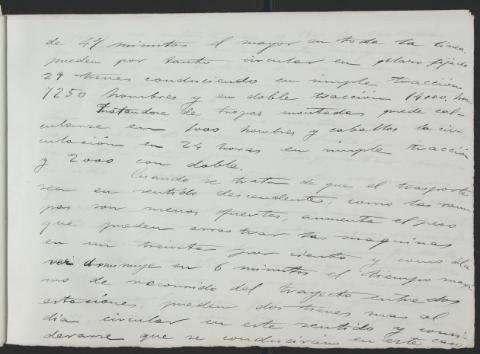 de 47 minutos el mayor en toda la linea,
pueden por tanto circular en plazo fijado
29 trenes conduciendo en simple tracción
7250 hombres y en doble tracción 14000. hom
Tratandose de tropas montadas puede cal
cularse en 1000 hombres y caballos la cir
culación en 24 horas en simple tracción
y 2000 con doble.
Cuando se trata de que el trasporte
sea en sentido descendente, como las ram
pas son menos fuertes, aumenta el peso
que pueden arrastrar las maquinas
en un treinta por ciento y como a la
vez disminuye en 6 minutos el tiempo maxi
mo de recorrido del trayecto entre dos
estaciones, pueden dos trenes mas al
dia circular en este sentido y consi
derarse que se conducirian en este caso